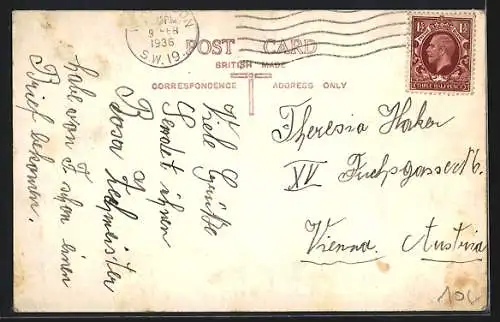 9 FEB
1936
S.W.19.
POST CARD
BRITISH MADE
CORRESPONDENCE
ADDRESS ONLY
1½ 1½
THREE HALFPENCE
Viele Grüße
Sendet ihnen
Rosa
habe von
einen
Brief bekommen.
Theresia Haker
XV Fuchsgasse 16.
Vienna. Austria